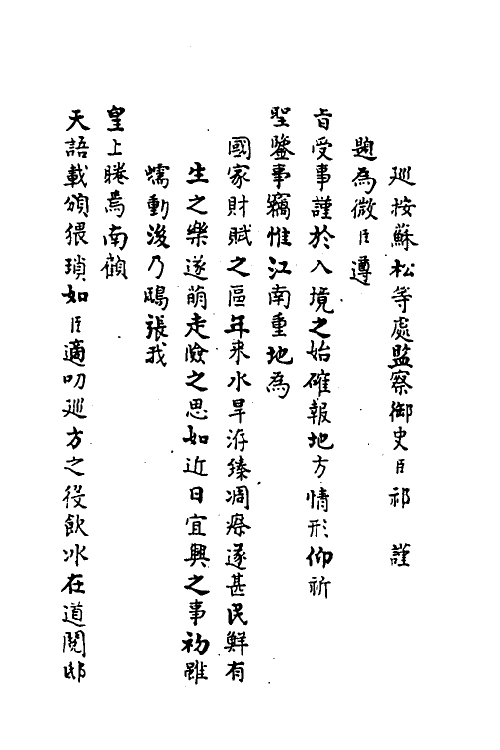 巡按蘇松等處監察御史臣祁 謹
題為微臣遵
旨受事謹於入境之始確報地方情形仰祈
聖鑒事竊惟江南重地為
國家財賦之區年來水旱洊臻凋瘵遂甚民鮮有
生之樂遂萌走險之思如近日宜興之事初雖
蠕動後乃鴟張我
皇上睠焉南顧
天語載頒猥瑣如臣適叨巡方之役飲冰在道閱邸